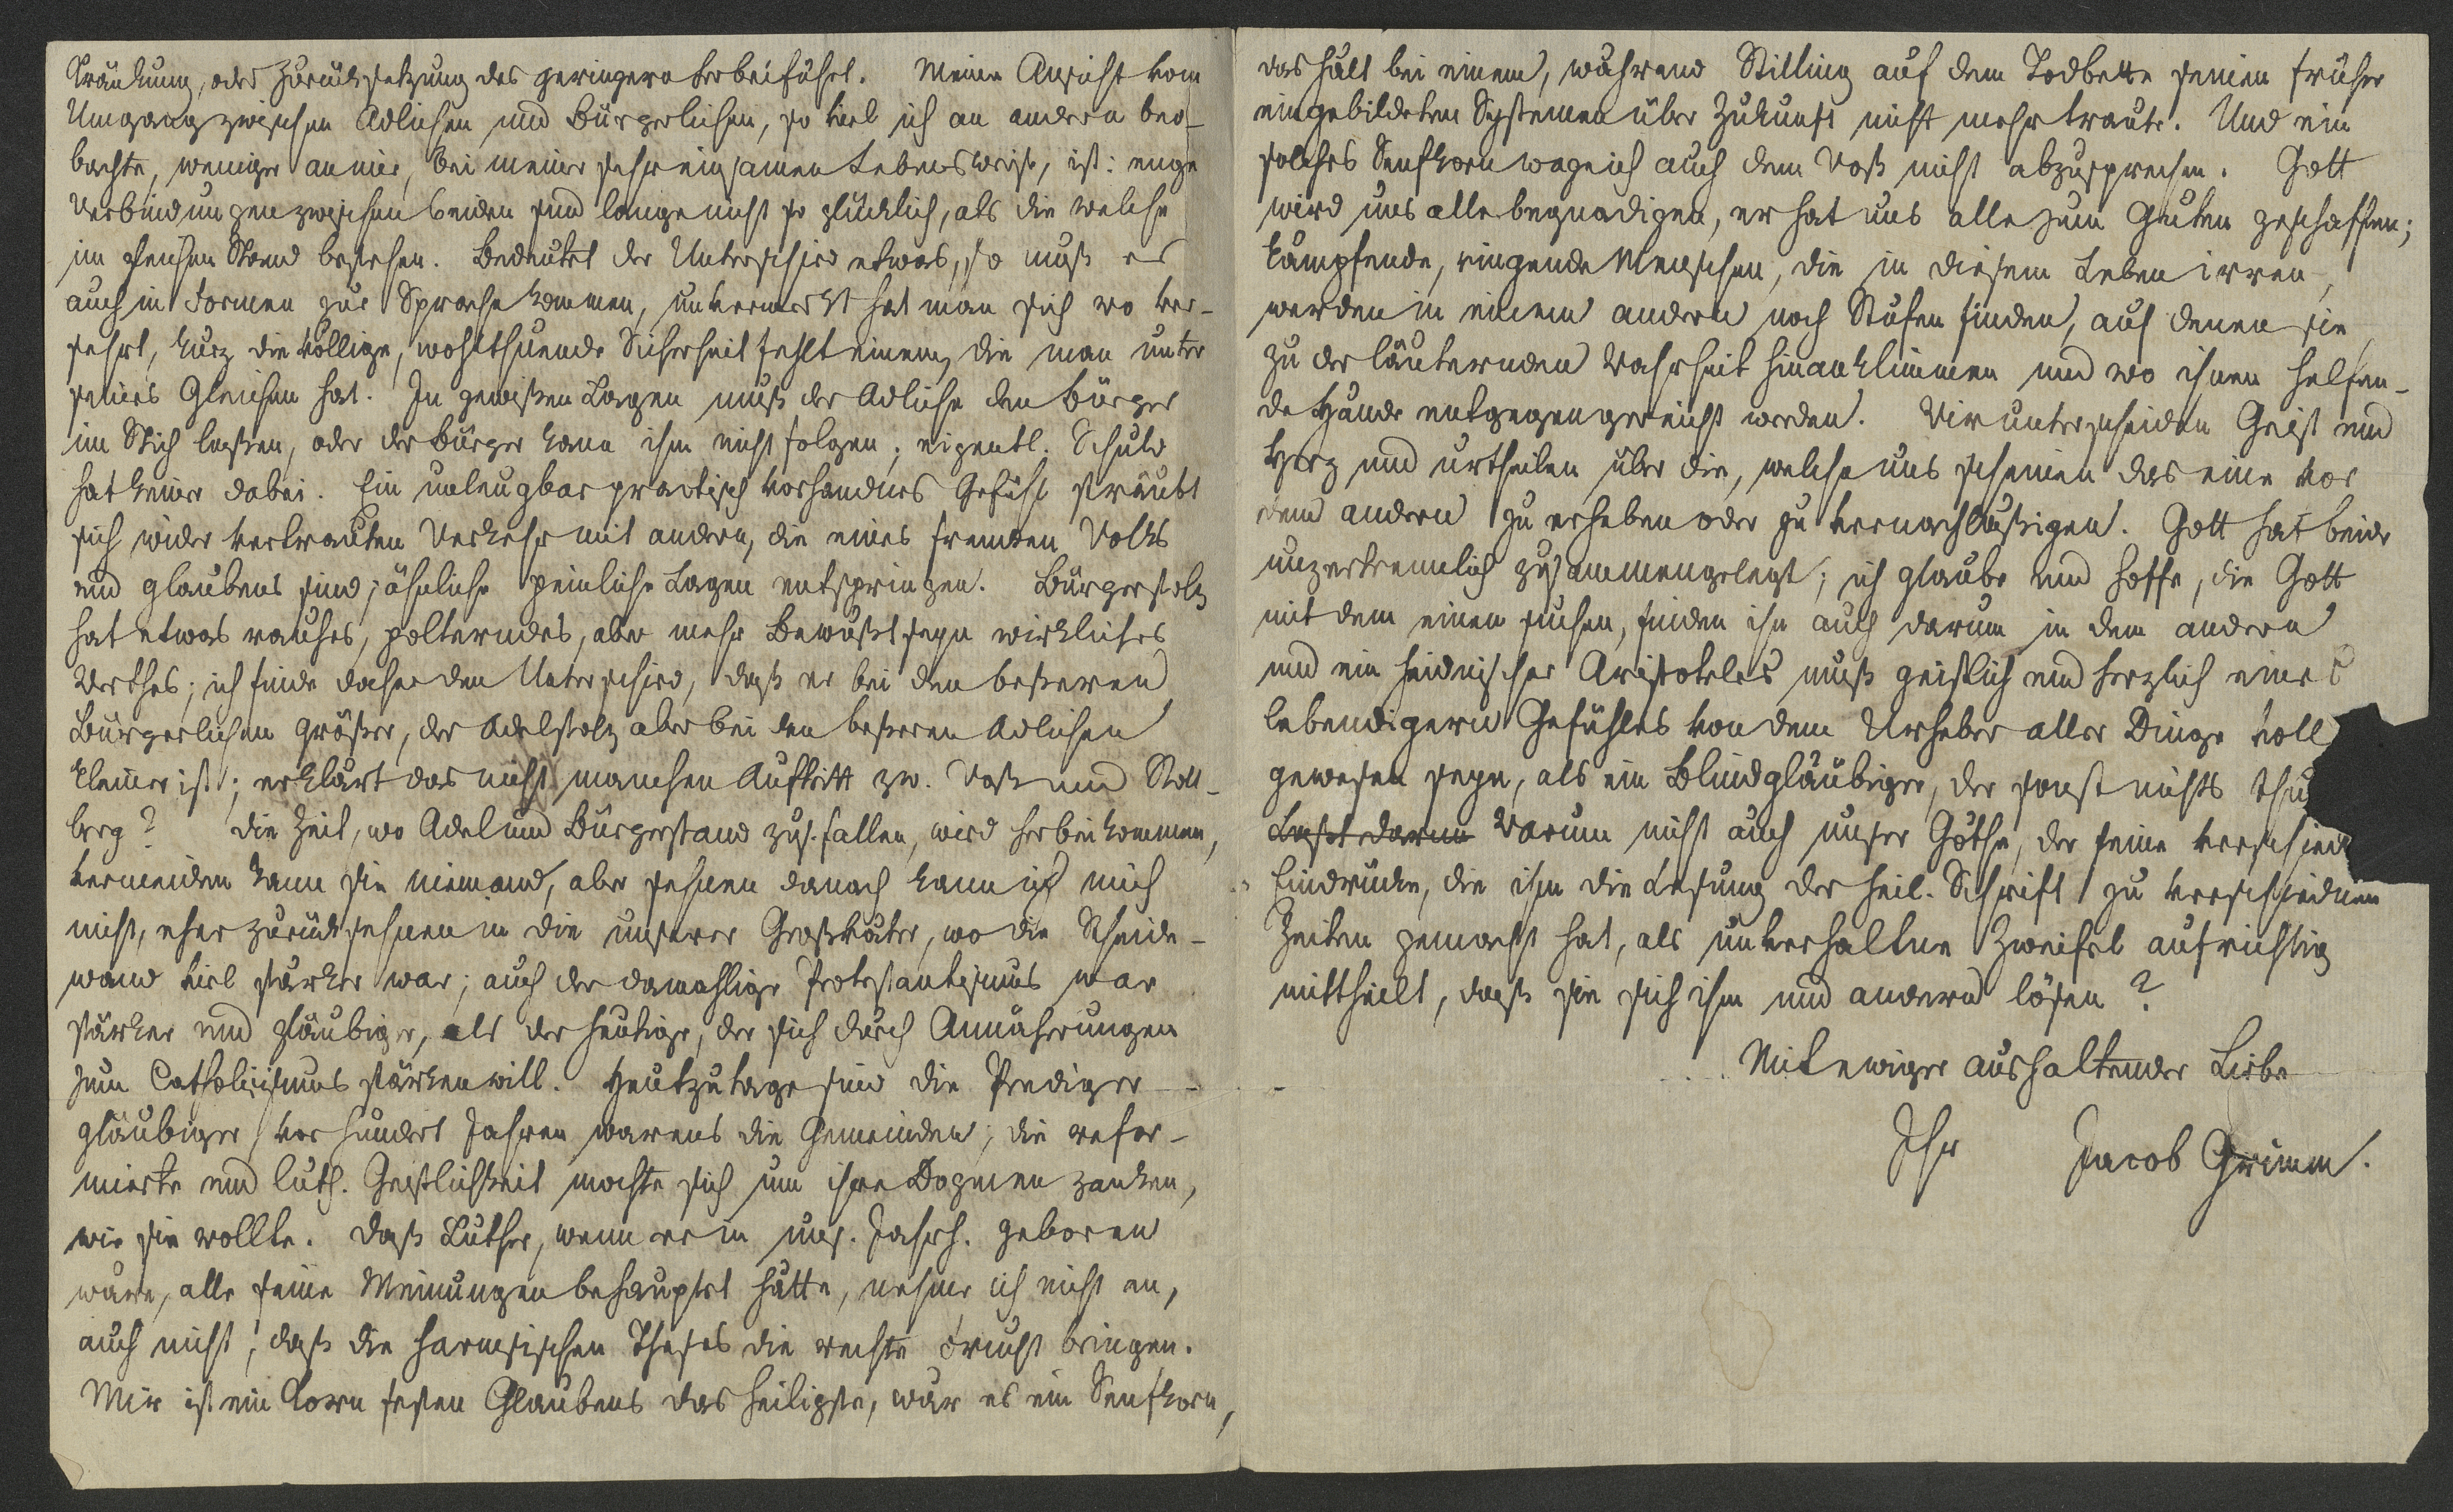 Kränkung, oder Zurücksetzung des geringern herbeiführt. Meine Ansicht vom
Umgang zwischen Adlichen und Bürgerlichen, so viel ich an andern beo-
bachte, weniger an mir, bei meiner sehr einsamen Lebensweise, ist: enge
Verbindungen zwischen beiden sind lange nicht so glücklich, als die welche
im gleichen Stand bestehen. Bedeutet der Unterschied etwas, so muß er
auch in Formen zur Sprache kommen, unvermerkt hat man sich wo ver-
sehrt, kurz die völlige, wohlthuende Sicherheit fehlt einem, die man unter
seines Gleichen hat. In gewißen Lagen muß der Adliche den Bürger
im Stich laßen, oder der Bürger kann ihm nicht folgen; eigentl. Schuld
hat keiner dabei. Ein unleugbar practisch vorhandnes Gefühl sträubt
sich wider vertrauten Verkehr mit andern, die eines fremden Volks
und glaubens sind; ähnliche peinliche Lagen entspringen. Bürgerstolz
hat etwas rauhes, polterndes, aber mehr Bewußtseyn wirkliches
Werthes; ich finde daher den Unterschied, daß er bei den beßeren
Bürgerlichen größer, der Adelstolz aber bei den beßeren Adlichen
kleiner ist; erklärt das nicht manchen Auftritt zw. Voß und Stoll-
berg? Die Zeit, wo Adel und Bürgerstand zus. fallen, wird herbei kommen,
vermeiden kann sie niemand, aber sehnen danach kann ich mich
nicht, eher zurücksehnen in die unserer Großväter, wo die Scheide-
wand viel stärker war; auch der damahlige Protestantismus war
stärker und gläubiger, als der heutige, der sich durch Annäherungen
zum Catholicismus stärken will. Heutzutage sind die Prediger
gläubiger, vor hundert Jahren warens die Gemeinden; die refor-
mierte und luth. Geistlichkeit mochte sich um ihre Dogmen zanken,
wie sie wollte. Daß Luther, wenn er in uns. Jahrh. geboren
wäre, alle seine Meinungen behauptet hätte, nehme ich nicht an,
auch nicht, daß die harmsischen Theses die rechte Frucht bringen.
Mir ist ein Korn festen Glaubens das heiligste, wär es ein Senfkorn,
das hält bei einem, während Stilling auf dem Todbette seinen früher
eingebildeten Systemen über Zukunft nicht mehr traute. Und ein
solches Senfkorn wage ich auch dem Voß nicht abzusprechen. Gott
wird uns alle begnadigen, er hat uns alle zum Guten geschaffen;
kämpfende, ringende Menschen, die in diesem Leben irren,
werden in einem andern noch Stufen finden, auf denen sie
zu der läuternden Wahrheit hinanklimmen und wo ihnen helfen-
de Hände entgegengereicht werden. Wir unterscheiden Geist und
Herz und urtheilen über die, welche uns scheinen das eine vor
dem andern zu erheben oder zu vernachläßigen. Gott hat beide
unzertrennlich zusammengelegt; ich glaube und hoffe, die Gott
mit dem einen suchen, finden ihn auch darum in dem andern
und ein heidnischer Aristoteles muß geistlich und herzlich eines
lebendigern Gefühles von dem Urheber aller Dinge voll
gewesen seyn, als ein Blindgläubiger, der sonst nichts thu
Laßt darum Warum nicht auch unser Göthe, der seine verschied
Eindrücke, die ihm die Lesung der heil. Schrift zu verschiednen
Zeiten gemacht hat, als unverhaltne Zweifel aufrichtig
mittheilt, daß sie sich ihm und andern lösen?
Mit ewiger aushaltender Liebe
Ihr Jacob Grimm.